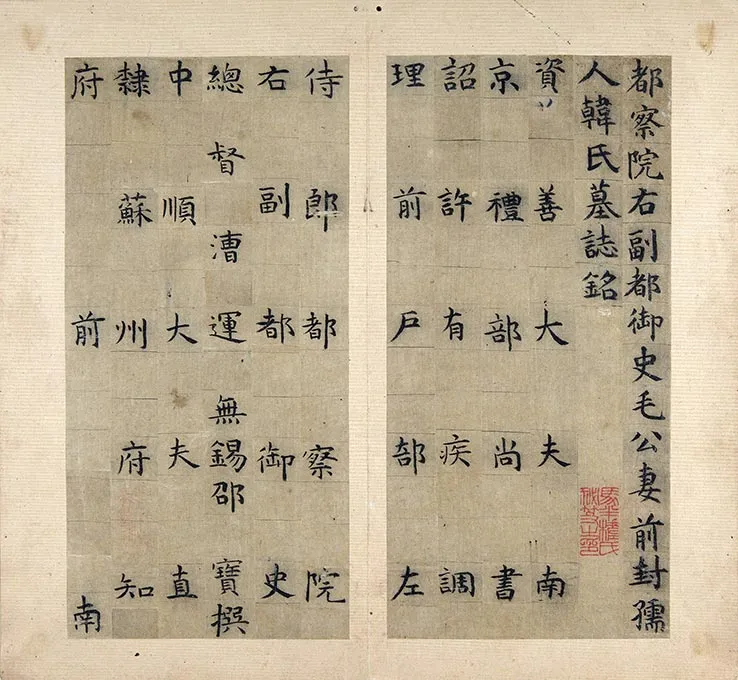 都察院右副都御史毛公妻前封孺
人韓氏墓誌銘
資善大夫南
京禮部尚書
詔許有疾調
理前戶部左
侍郎都察院
右副都御史
總督漕運無錫邵寶撰
中順大夫直
隸蘇州府知
府前南